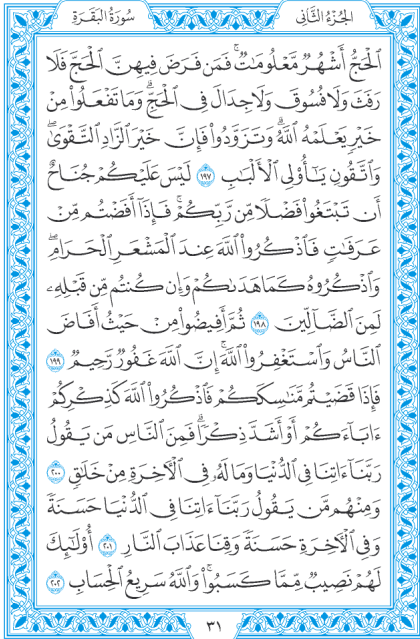 سُورَةُ البَقَرَةِ
الجُزْءُ الثَّانِي
ٱلْحَجُّ أَشْهُرٌ مَّعْلُومَٰتٌ ۚ فَمَن فَرَضَ فِيهِنَّ ٱلْحَجَّ فَلَا
رَفَثَ وَلَا فُسُوقَ وَلَا جِدَالَ فِى ٱلْحَجِّ ۗ وَمَا تَفْعَلُوا۟ مِنْ
خَيْرٍ يَعْلَمْهُ ٱللَّهُ ۗ وَتَزَوَّدُوا۟ فَإِنَّ خَيْرَ ٱلزَّادِ ٱلتَّقْوَىٰ ۚ
وَٱتَّقُونِ يَٰٓأُو۟لِى ٱلْأَلْبَٰبِ ١٩٧ لَيْسَ عَلَيْكُمْ جُنَاحٌ
أَن تَبْتَغُوا۟ فَضْلًا مِّن رَّبِّكُمْ ۚ فَإِذَآ أَفَضْتُم مِّنْ
عَرَفَٰتٍ فَٱذْكُرُوا۟ ٱللَّهَ عِندَ ٱلْمَشْعَرِ ٱلْحَرَامِ ۖ
وَٱذْكُرُوهُ كَمَا هَدَىٰكُمْ وَإِن كُنتُم مِّن قَبْلِهِۦ
لَمِنَ ٱلضَّآلِّينَ ١٩٨ ثُمَّ أَفِيضُوا۟ مِنْ حَيْثُ أَفَاضَ
ٱلنَّاسُ وَٱسْتَغْفِرُوا۟ ٱللَّهَ ۚ إِنَّ ٱللَّهَ غَفُورٌ رَّحِيمٌ ١٩٩
فَإِذَا قَضَيْتُم مَّنَٰسِكَكُمْ فَٱذْكُرُوا۟ ٱللَّهَ كَذِكْرِكُمْ
ءَابَآءَكُمْ أَوْ أَشَدَّ ذِكْرًا ۗ فَمِنَ ٱلنَّاسِ مَن يَقُولُ
رَبَّنَآ ءَاتِنَا فِى ٱلدُّنْيَا وَمَا لَهُۥ فِى ٱلْءَاخِرَةِ مِنْ خَلَٰقٍ ٢٠٠
وَمِنْهُم مَّن يَقُولُ رَبَّنَآ ءَاتِنَا فِى ٱلدُّنْيَا حَسَنَةً
وَفِى ٱلْءَاخِرَةِ حَسَنَةً وَقِنَا عَذَابَ ٱلنَّارِ ٢٠١ أُو۟لَٰٓئِكَ
لَهُمْ نَصِيبٌ مِّمَّا كَسَبُوا۟ ۚ وَٱللَّهُ سَرِيعُ ٱلْحِسَابِ ٢٠٢
٣١